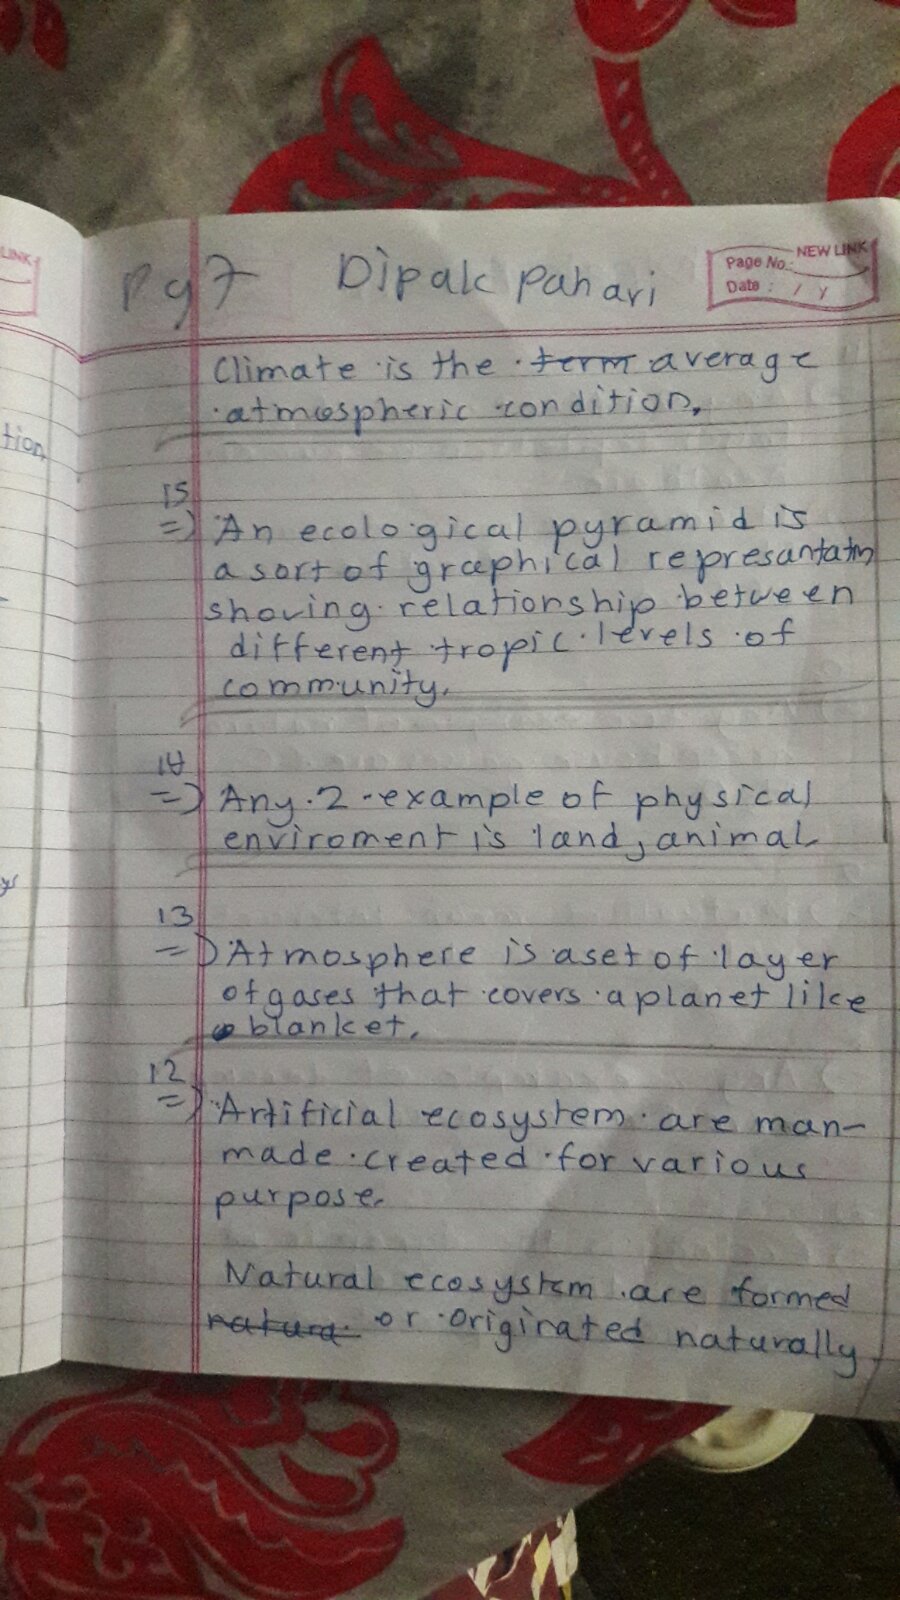 LINK
NEW LINK
Page No.:
Date : / /
Pg 7 Dipak Pahari
Climate is the term average
atmospheric condition.
tion
15
=) An ecological pyramid is
a sort of graphical represantatn
shoving relationship between
different tropic levels of
community.
14
=) Any 2 example of physical
enviroment is land, animal
13
=) Atmosphere is a set of layer
of gases that covers a planet like
blanket.
12
=) Artificial ecosystem are man-
made created for various
purpose.
Natural ecosystem are formed
natura or originated naturally